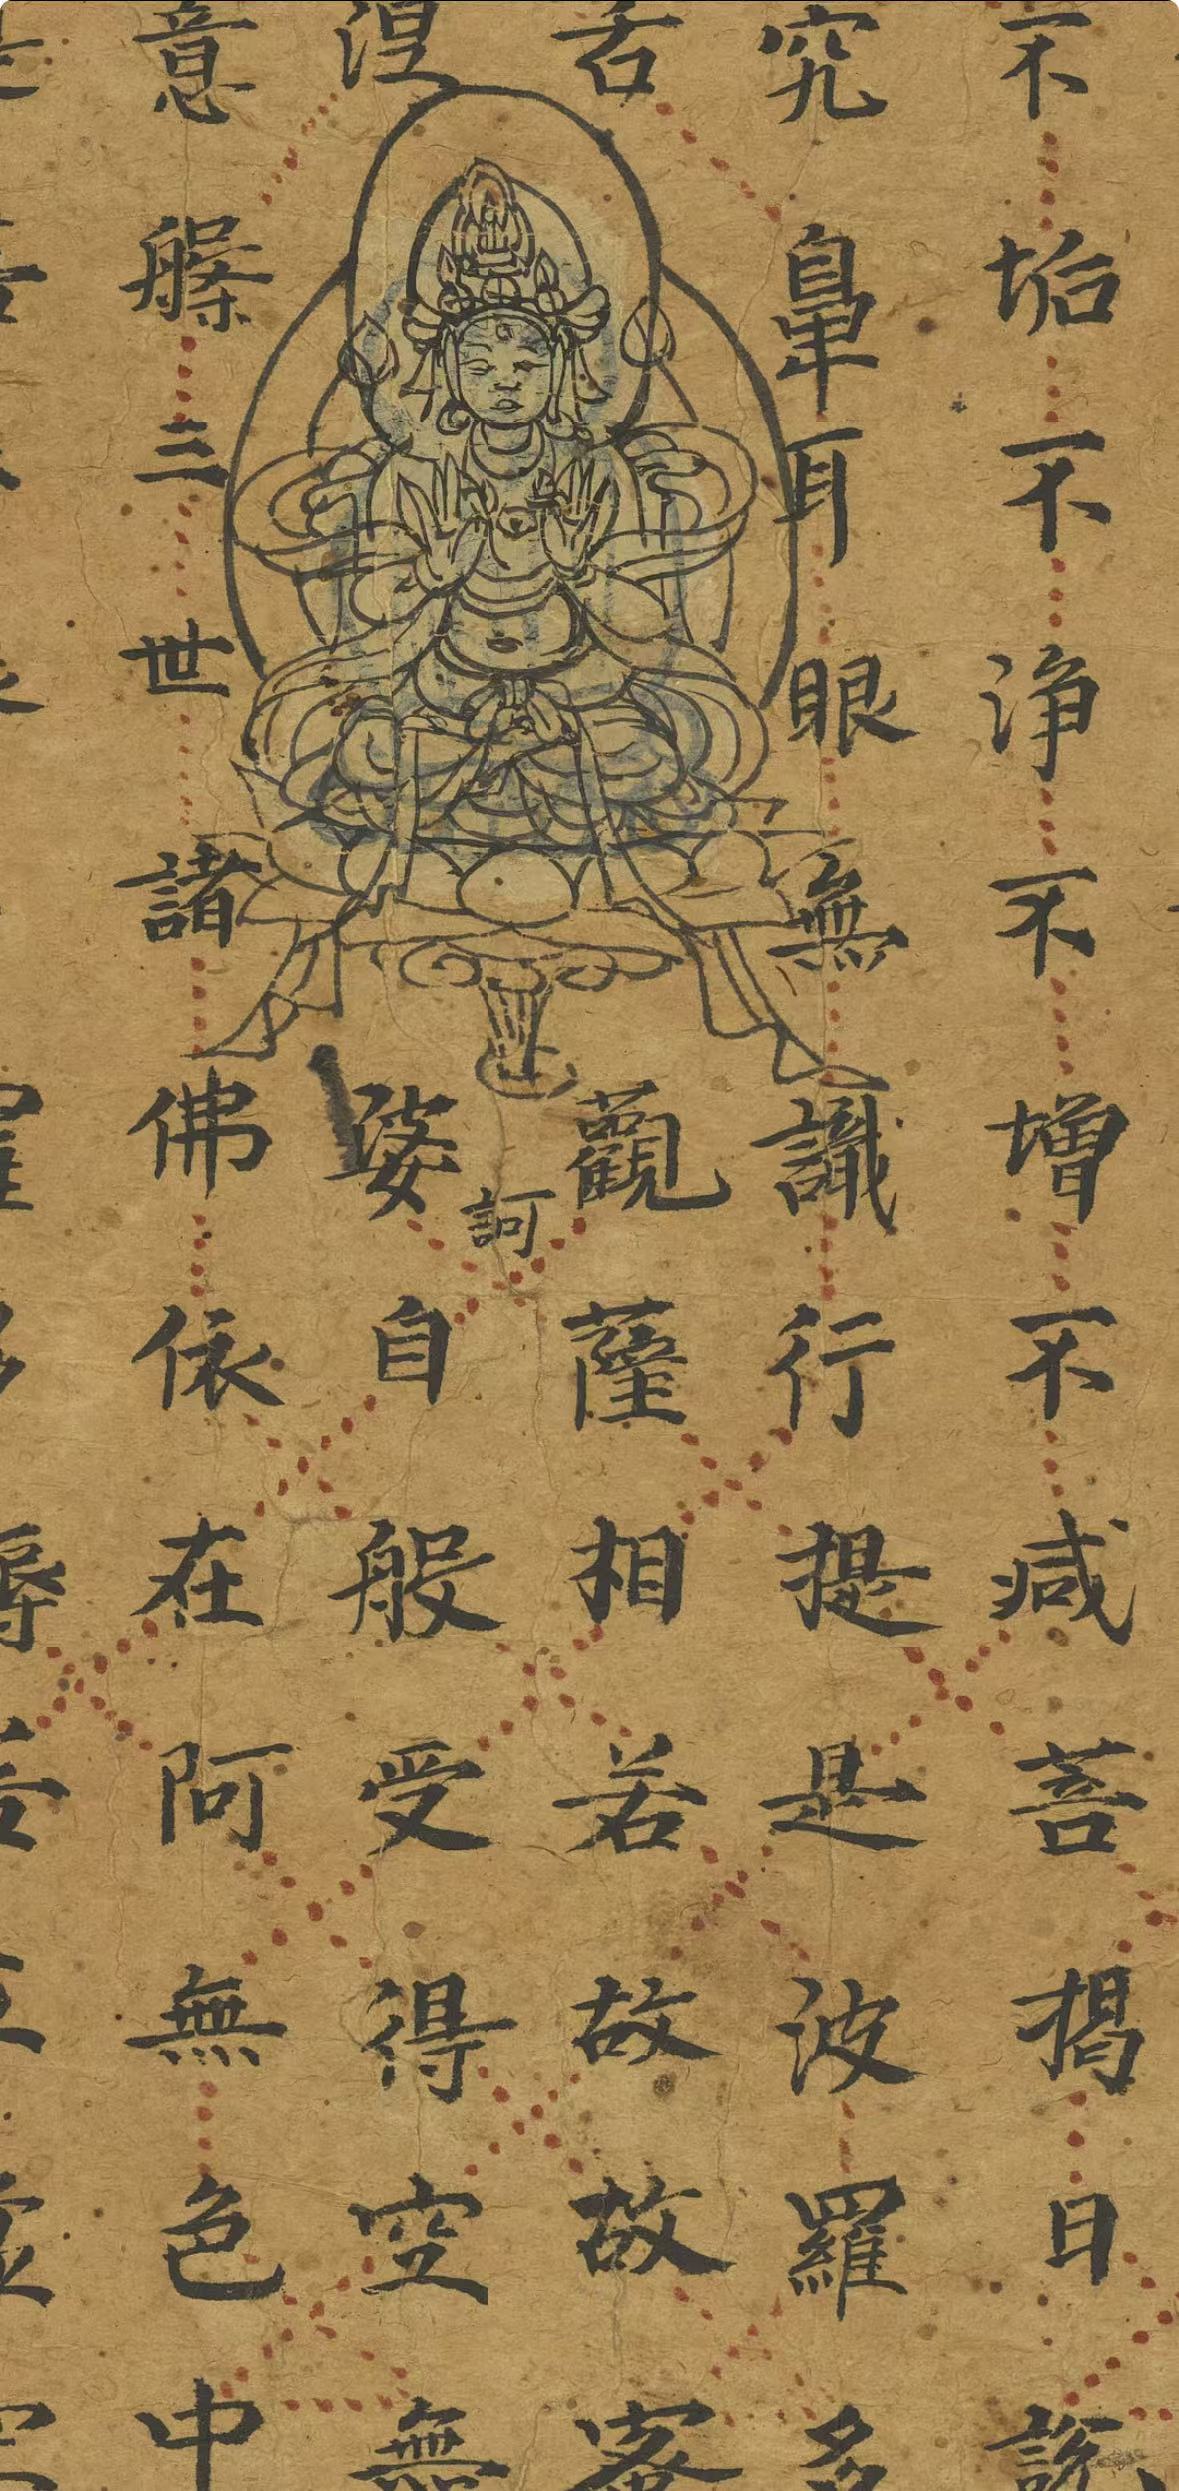 不垢不淨不增不减菩揭日説
究鼻耳眼無識行提是波羅多
舌觀薩相若故故密
訶
涅婆自般受得空無
意般三世諸佛依在阿無色中